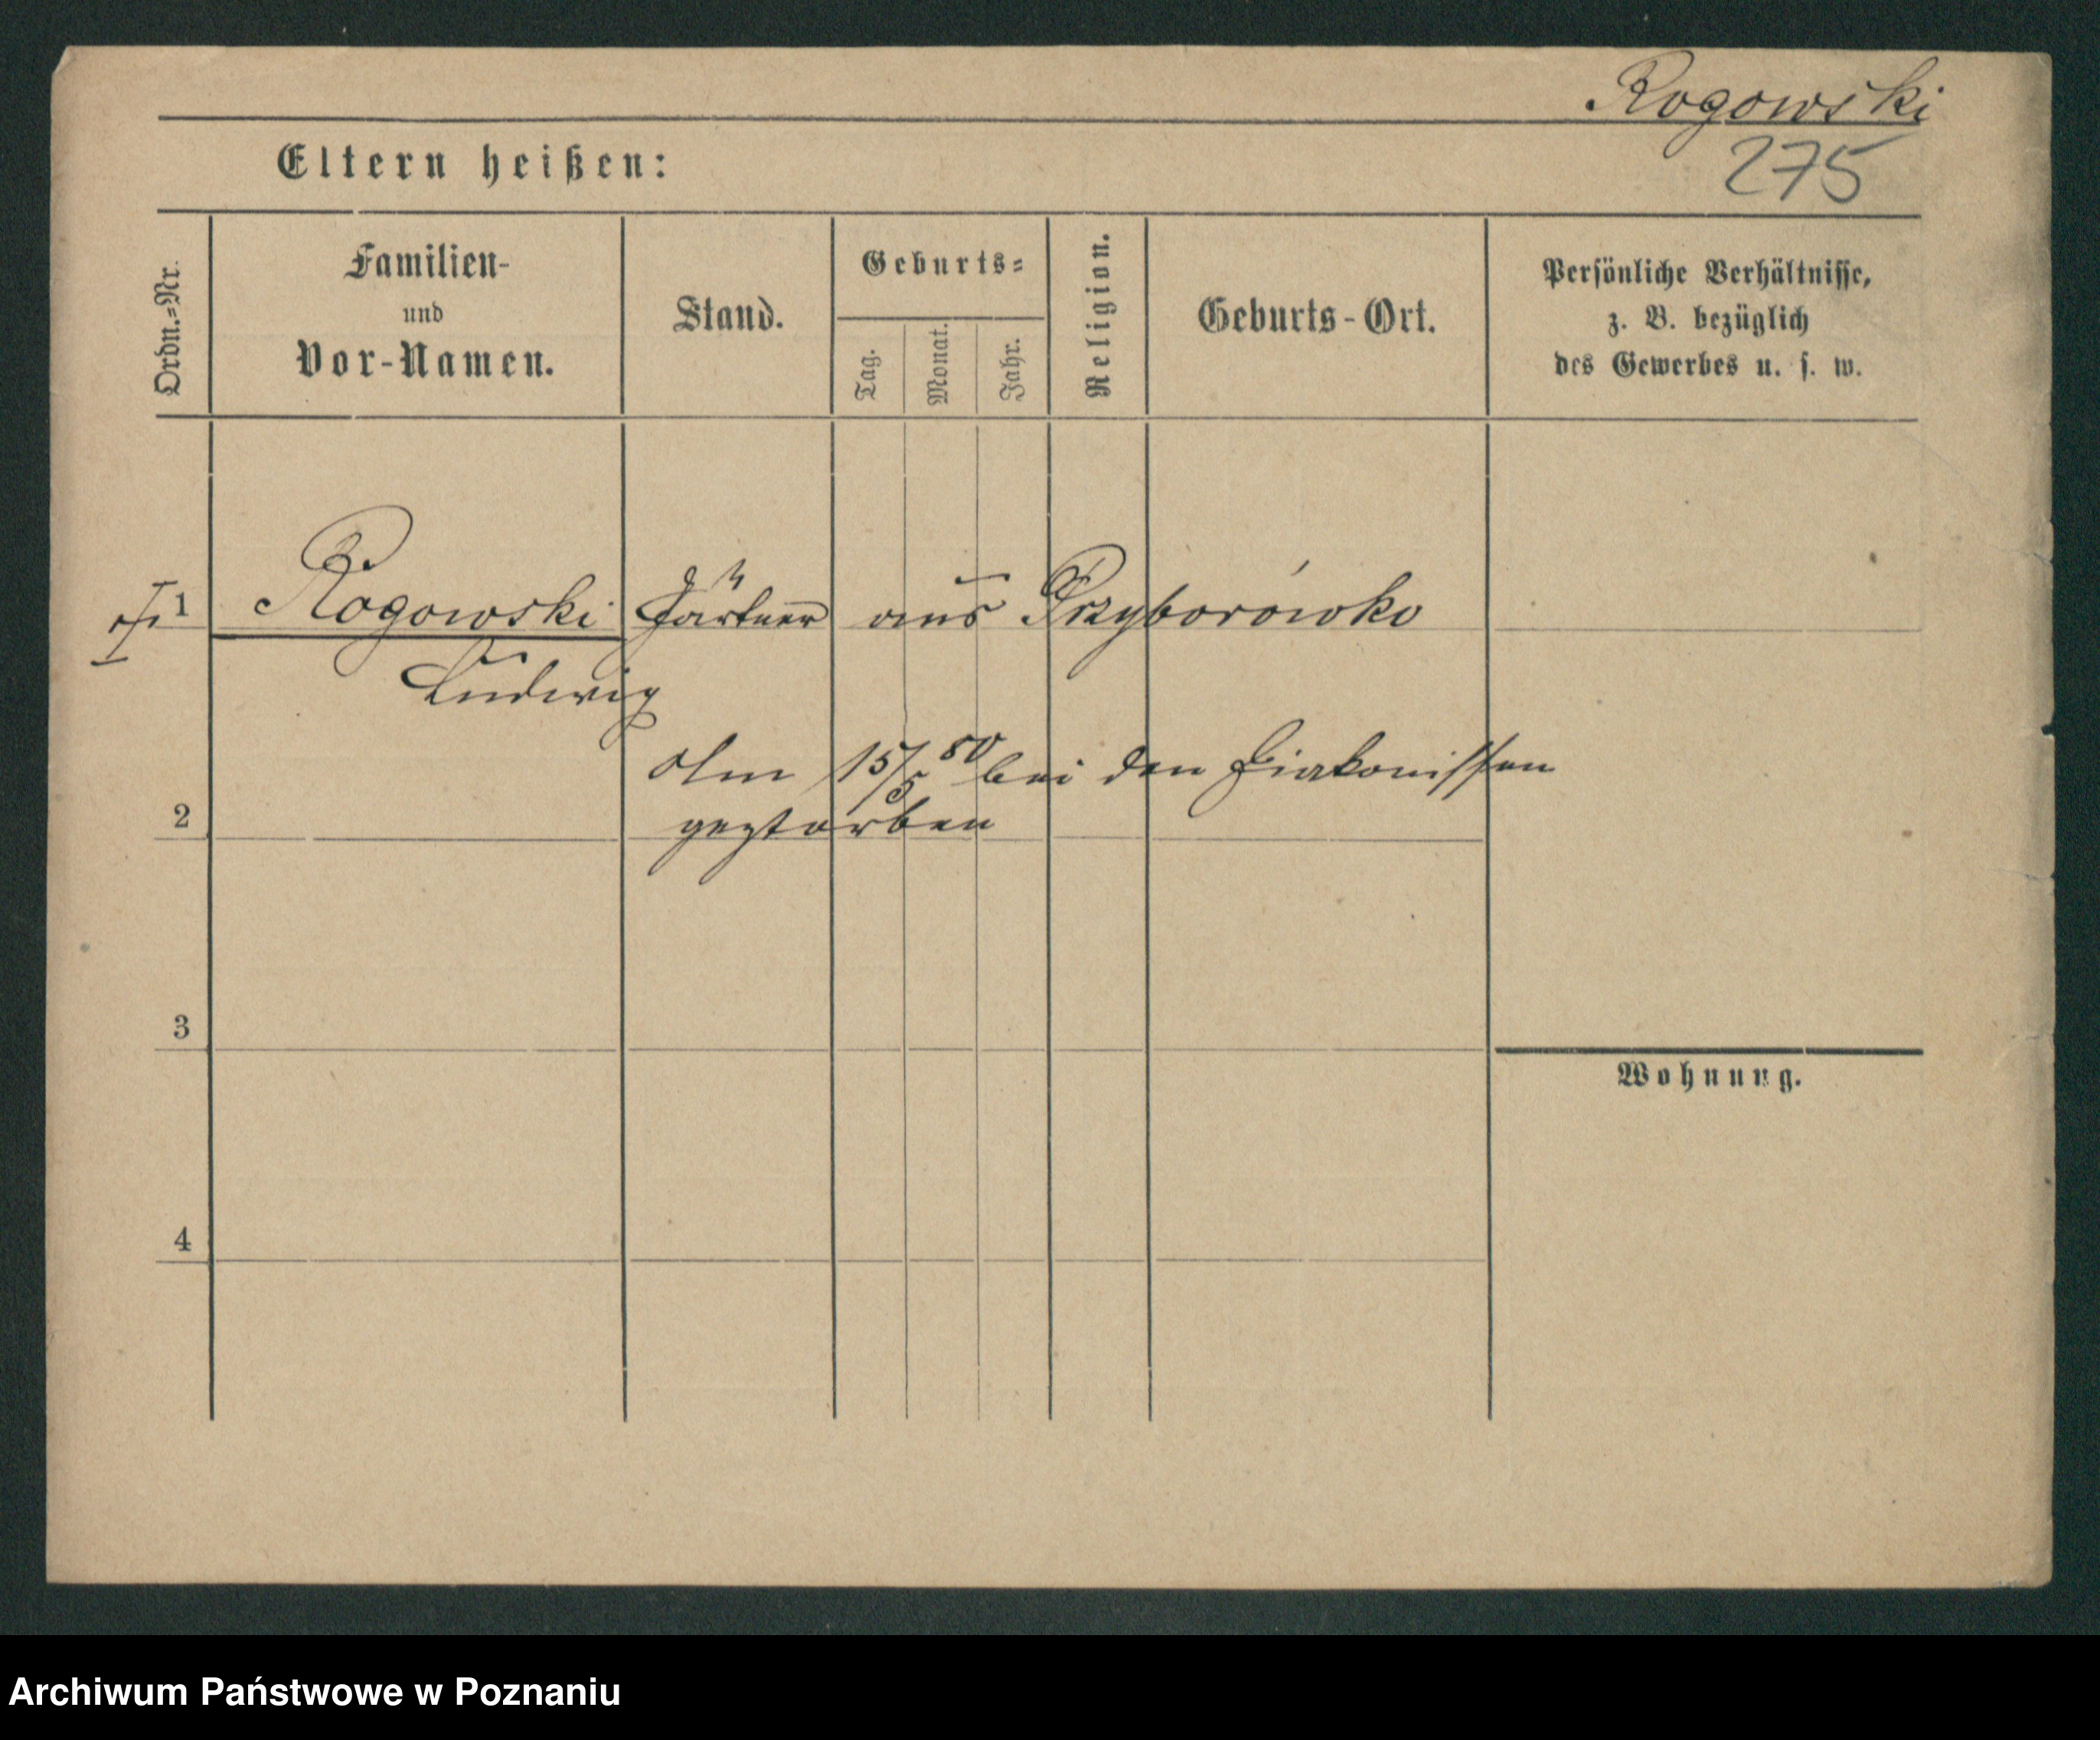 Rogowski
275
Eltern heißen:
Ordn.=Nr.
Familien-
und
Vor-Namen.
Stand.
Geburts=
Tag.
Monat.
Jahr.
Religion.
Geburts-Ort.
Persönliche Verhältnisse,
z. B. bezüglich
des Gewerbes u. s. w.
1 Rogowski Gärtner aus Przyborówko
Ludwig
Am 15/5 80 bei den Diakonissen
gestorben
2
3
Wohnung.
4
Archiwum Państwowe w Poznaniu